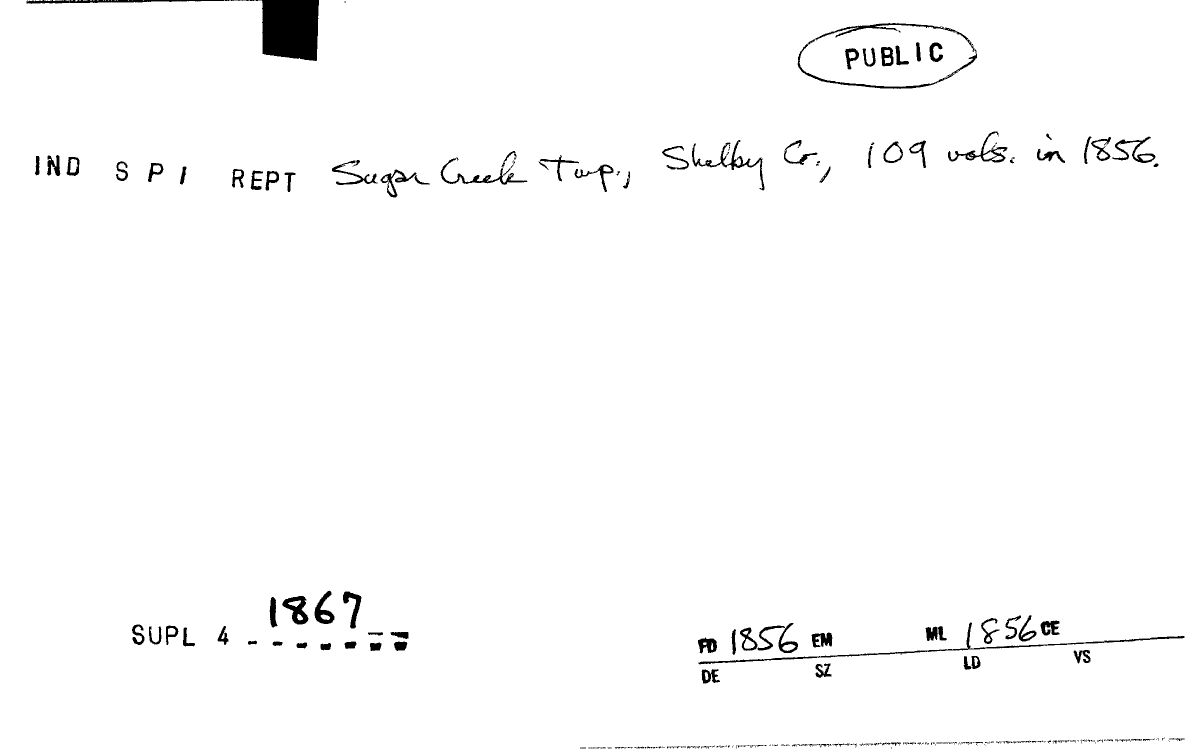 PUBLIC
IND S P I REPT Sugar Creek Twp., Shelby Co., 109 vols. in 1856.
1867
SUPL 4 - - - - - - - -
FD 1856 EM ML 1856 CE
DE SZ LD VS